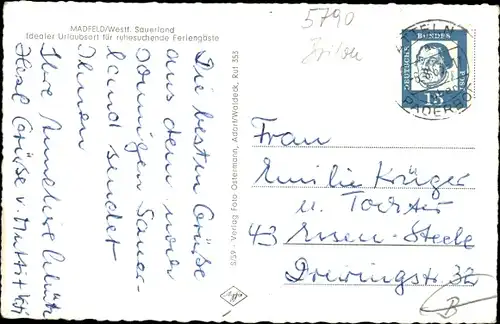 MADFELD/Westf. Sauerland
Idealer Urlaubsort für ruhesuchende Feriengäste
5790
Brilon
DEUTSCHE BUNDESPOST
15
PADERBORN
Die besten Grüße
aus dem
sonnigen Sauer-
land sendet
Ihnen
Ihre Anneliese
Herzl. Grüße v. Mutti +
S/59 - Verlag Foto Ostermann, Adorf/Waldeck, Ruf 353
Frau
Emilie Krüger
u. Tochter
43 Essen-Steele
Dreiringstr. 32
B